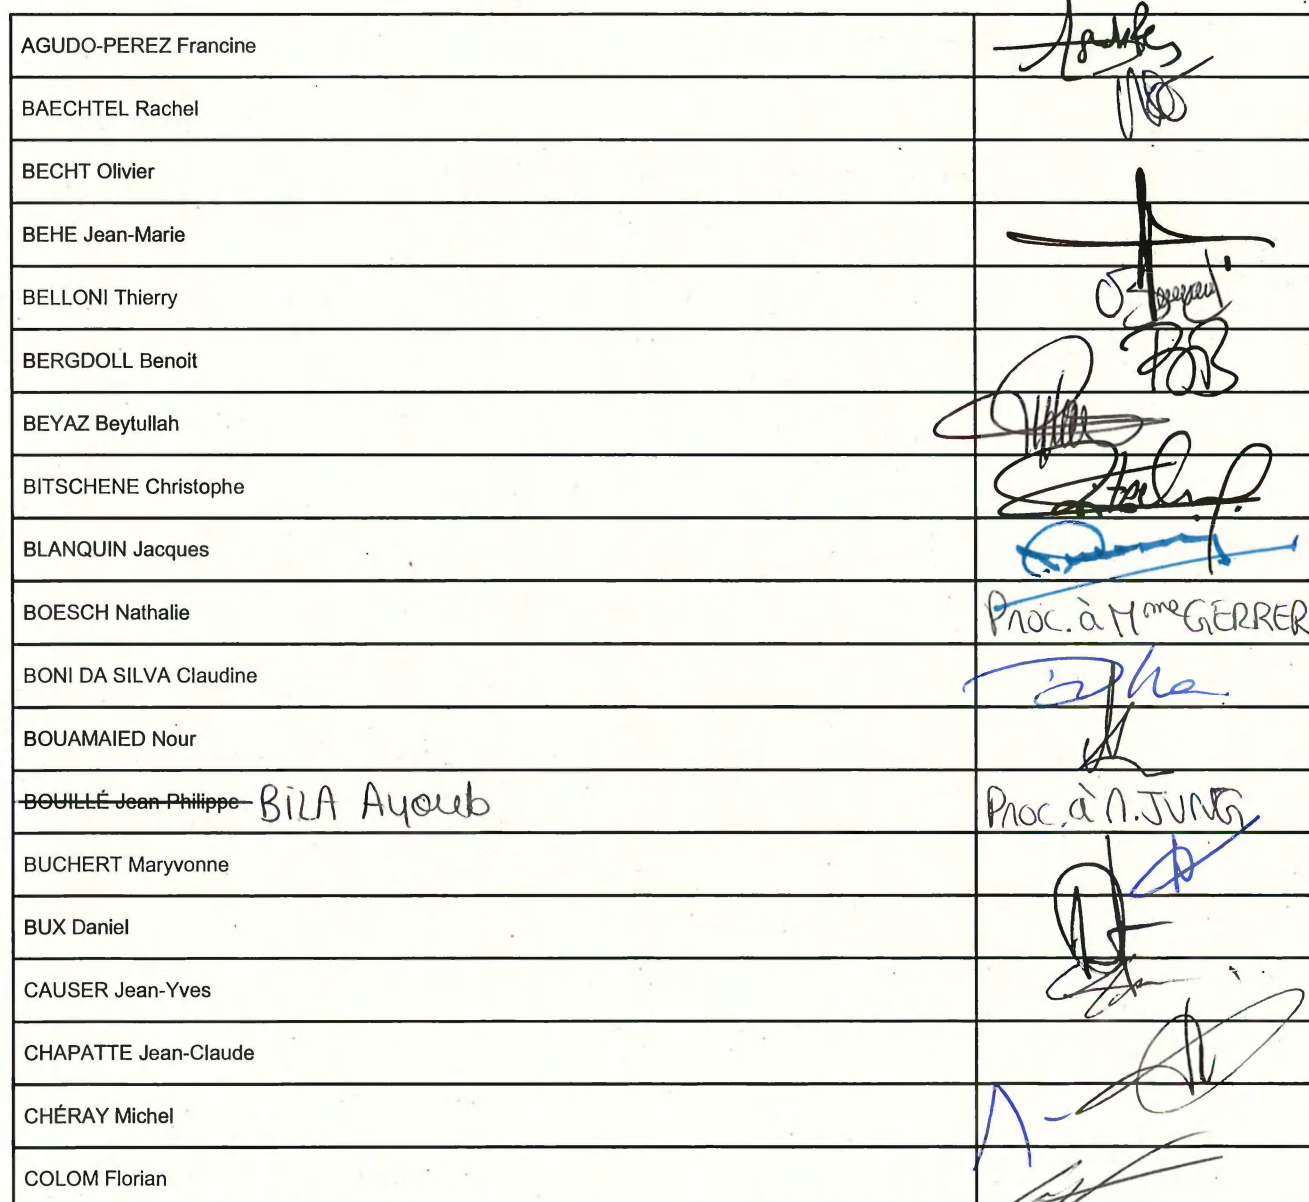 AGUDO-PEREZ Francine
BAECHTEL Rachel
BECHT Olivier
BEHE Jean-Marie
BELLONI Thierry
BERGDOLL Benoit
BEYAZ Beytullah
BITSCHENE Christophe
BLANQUIN Jacques
BOESCH Nathalie Proc. à Mme GERRER
BONI DA SILVA Claudine
BOUAMAIED Nour
BOUILLÉ Jean Philippe BILA Ayoub Proc. à M. JUNG
BUCHERT Maryvonne
BUX Daniel
CAUSER Jean-Yves
CHAPATTE Jean-Claude
CHÉRAY Michel
COLOM Florian